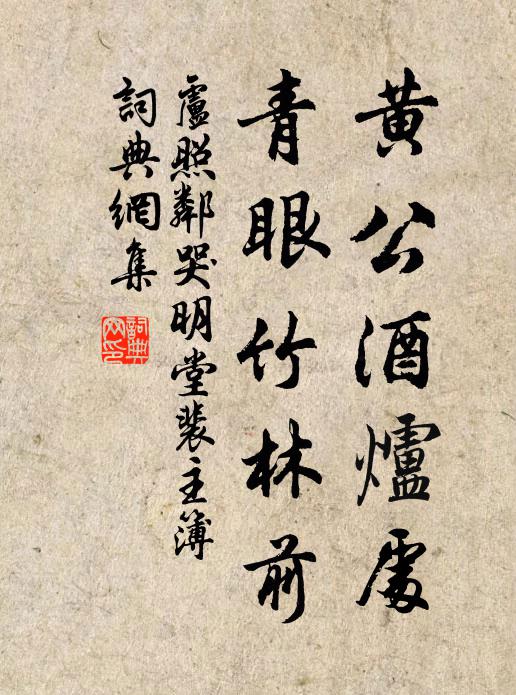 黃公酒爐處
青眼竹林前
盧照鄰哭明堂裴主簿
詞典網集
詞典網印